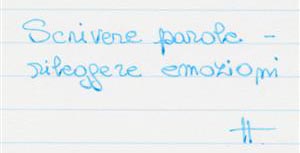 Scrivere parole -
rileggere emozioni
H